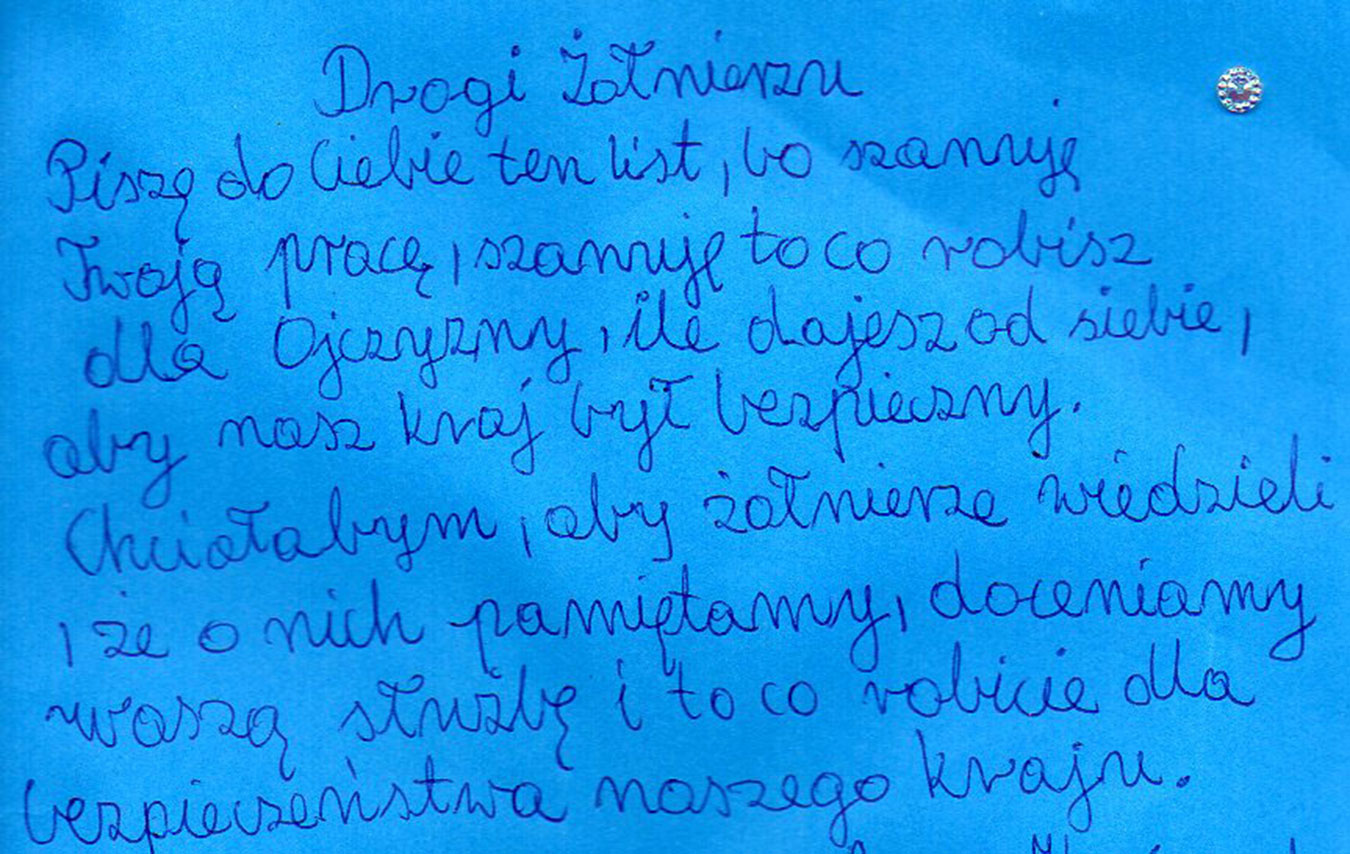 Drogi Żołnierzu
Piszę do Ciebie ten list, bo szanuję
Twoją pracę, szanuję to co robisz
dla Ojczyzny, ile dajesz od siebie,
aby nasz kraj był bezpieczny.
Chciałabym, aby żołnierze wiedzieli
, że o nich pamiętamy, doceniamy
waszą służbę i to co robicie dla
bezpieczeństwa naszego kraju.